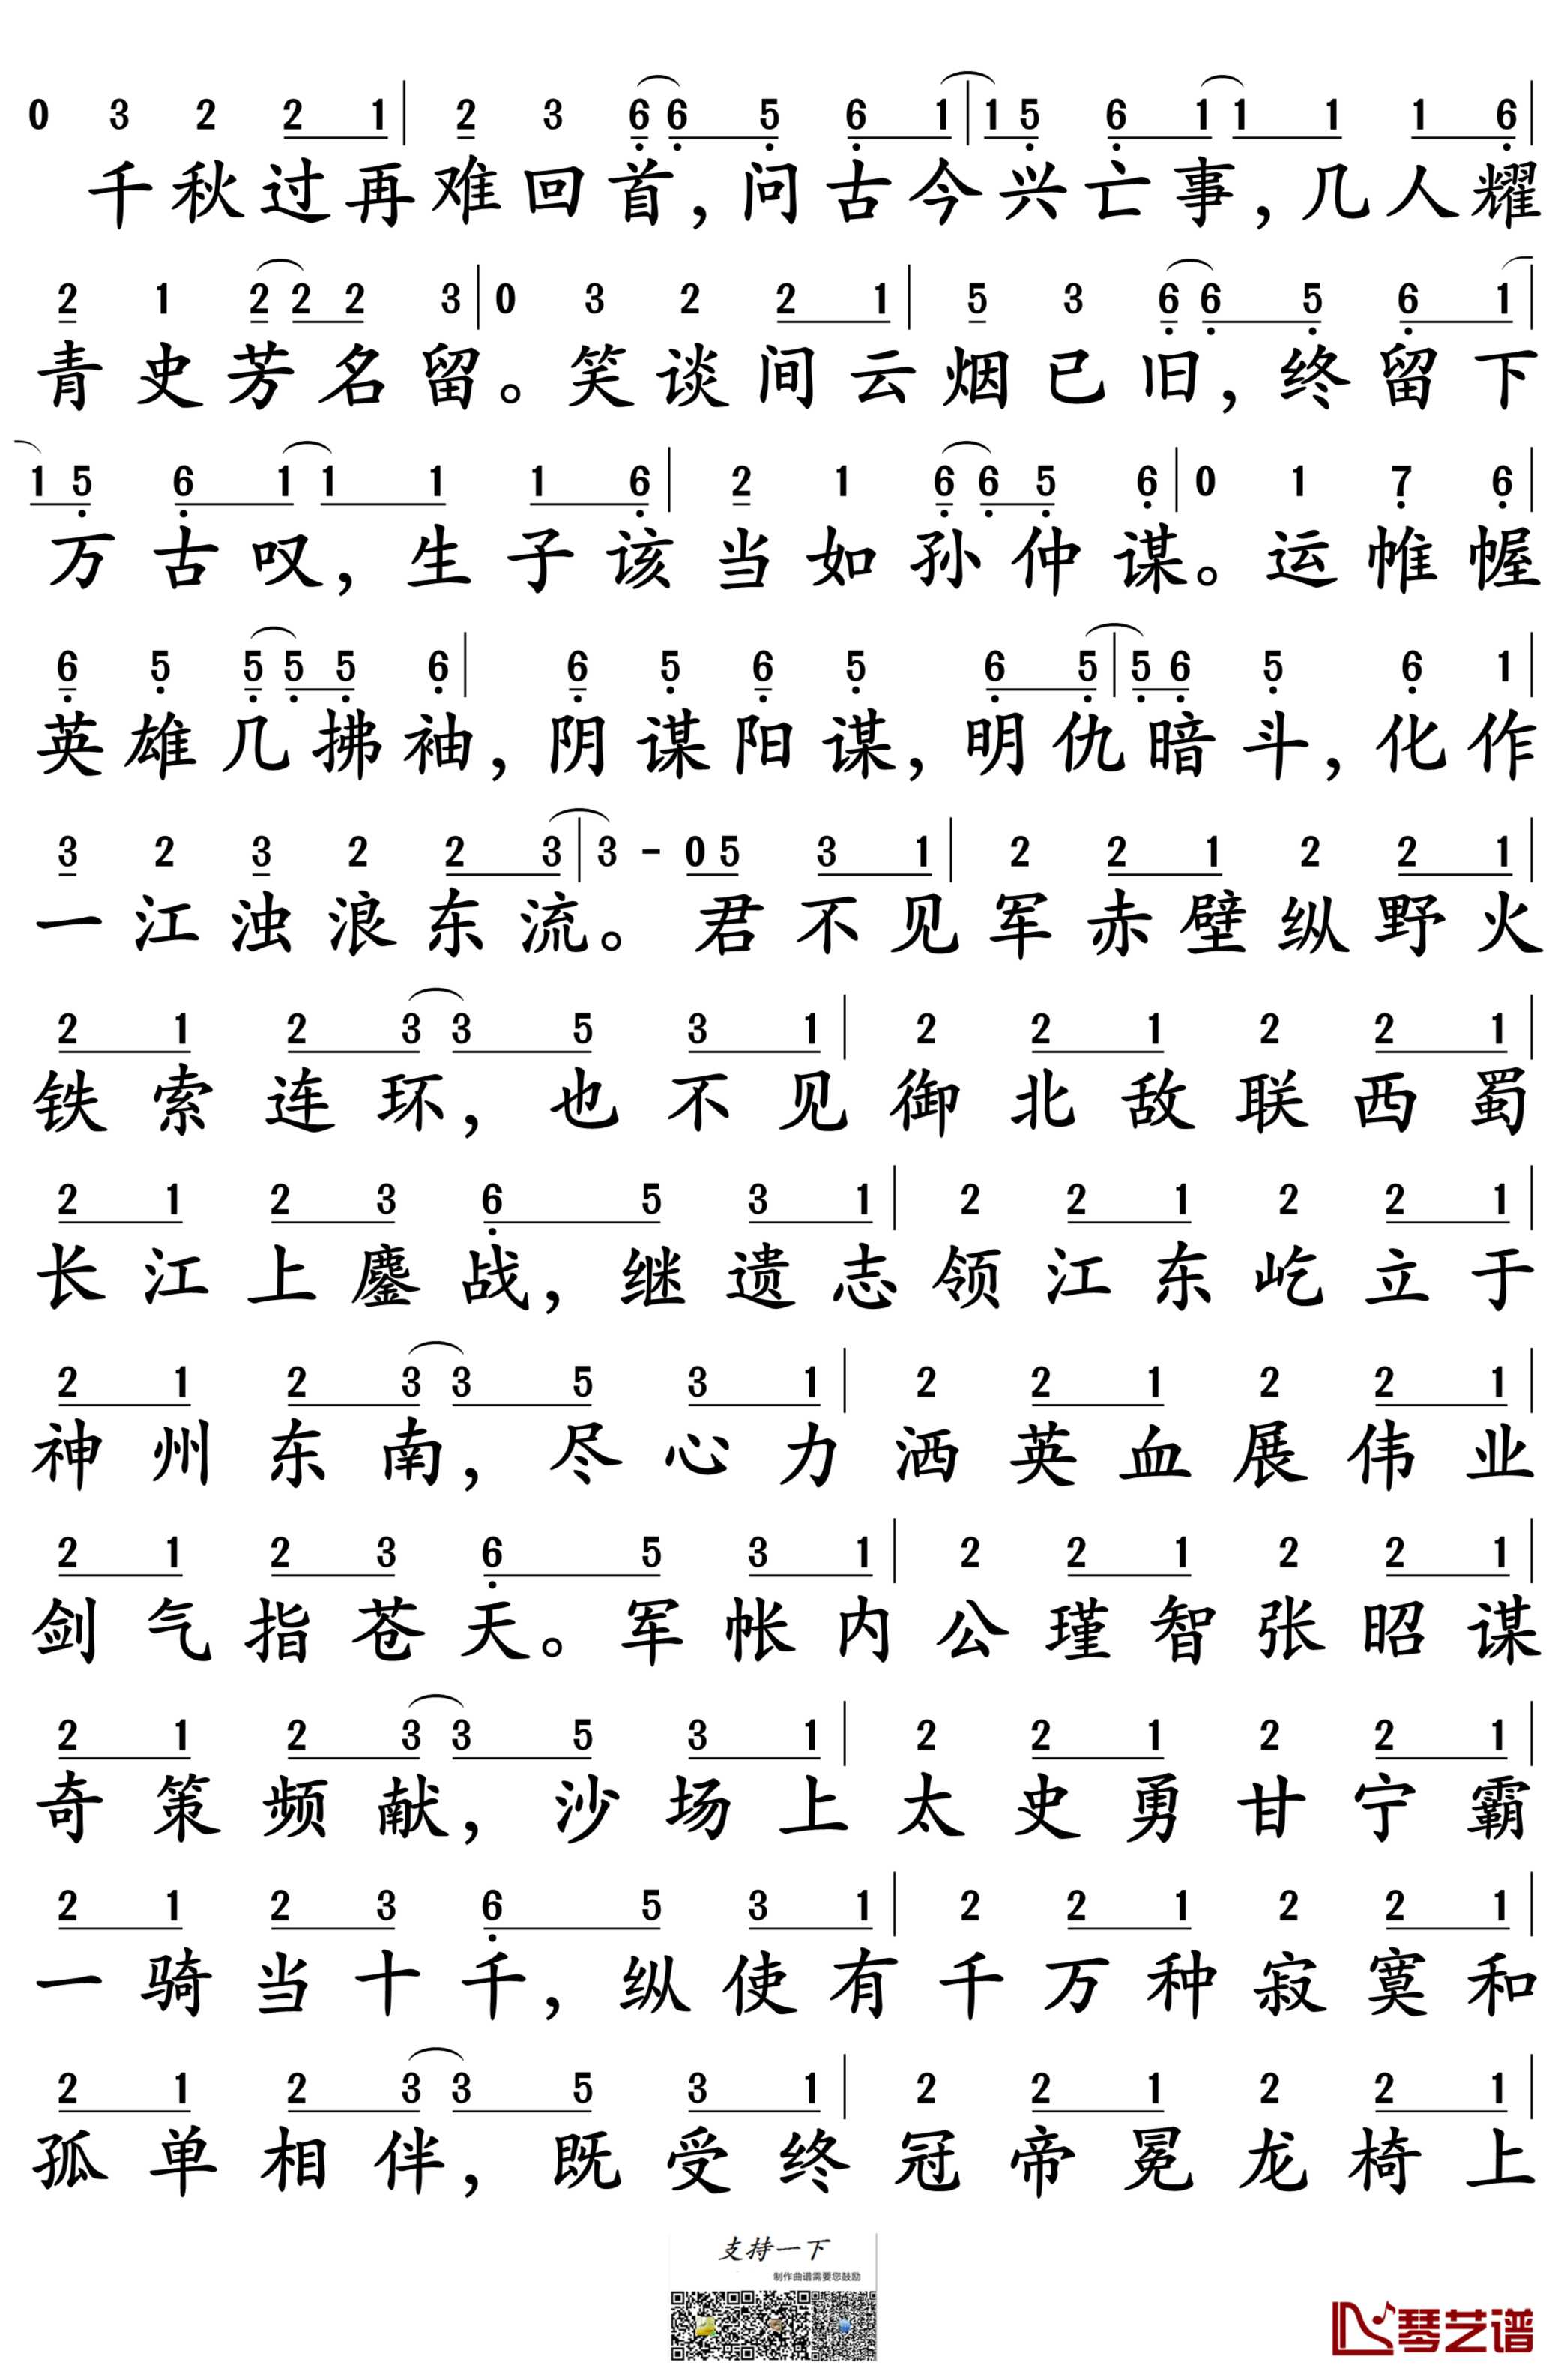 0 3 2 2 1 | 2 3 6 6 5 6 1 | 1 5 6 1 1 1 1 6 |
千秋过再难回首，问古今兴亡事，几人耀
2 1 2 2 2 3 | 0 3 2 2 1 | 5 3 6 6 5 6 1 |
青史芳名留。笑谈间云烟已旧，终留下
1 5 6 1 1 1 1 6 | 2 1 6 6 5 6 | 0 1 7 6 |
万古叹，生子该当如孙仲谋。运帷幄
6 5 5 5 5 6 | 6 5 6 5 6 5 | 5 6 5 6 1 |
英雄几拂袖，阴谋阳谋，明仇暗斗，化作
3 2 3 2 2 3 | 3 - 0 5 3 1 | 2 2 1 2 2 1 |
一江浊浪东流。君不见军赤壁纵野火
2 1 2 3 3 5 3 1 | 2 2 1 2 2 1 |
铁索连环，也不见御北敌联西蜀
2 1 2 3 6 5 3 1 | 2 2 1 2 2 1 |
长江上鏖战，继遗志领江东屹立于
2 1 2 3 3 5 3 1 | 2 2 1 2 2 1 |
神州东南，尽心力洒英血展伟业
2 1 2 3 6 5 3 1 | 2 2 1 2 2 1 |
剑气指苍天。军帐内公瑾智张昭谋
2 1 2 3 3 5 3 1 | 2 2 1 2 2 1 |
奇策频献，沙场上太史勇甘宁霸
2 1 2 3 6 5 3 1 | 2 2 1 2 2 1 |
一骑当十千，纵使有千万种寂寞和
2 1 2 3 3 5 3 1 | 2 2 1 2 2 1 |
孤单相伴，既受终冠帝冕龙椅上
支持一下
制作曲谱需要您鼓励
琴艺谱